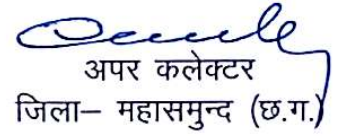 अपर कलेक्टर
जिला– महासमुन्द (छ.ग.)